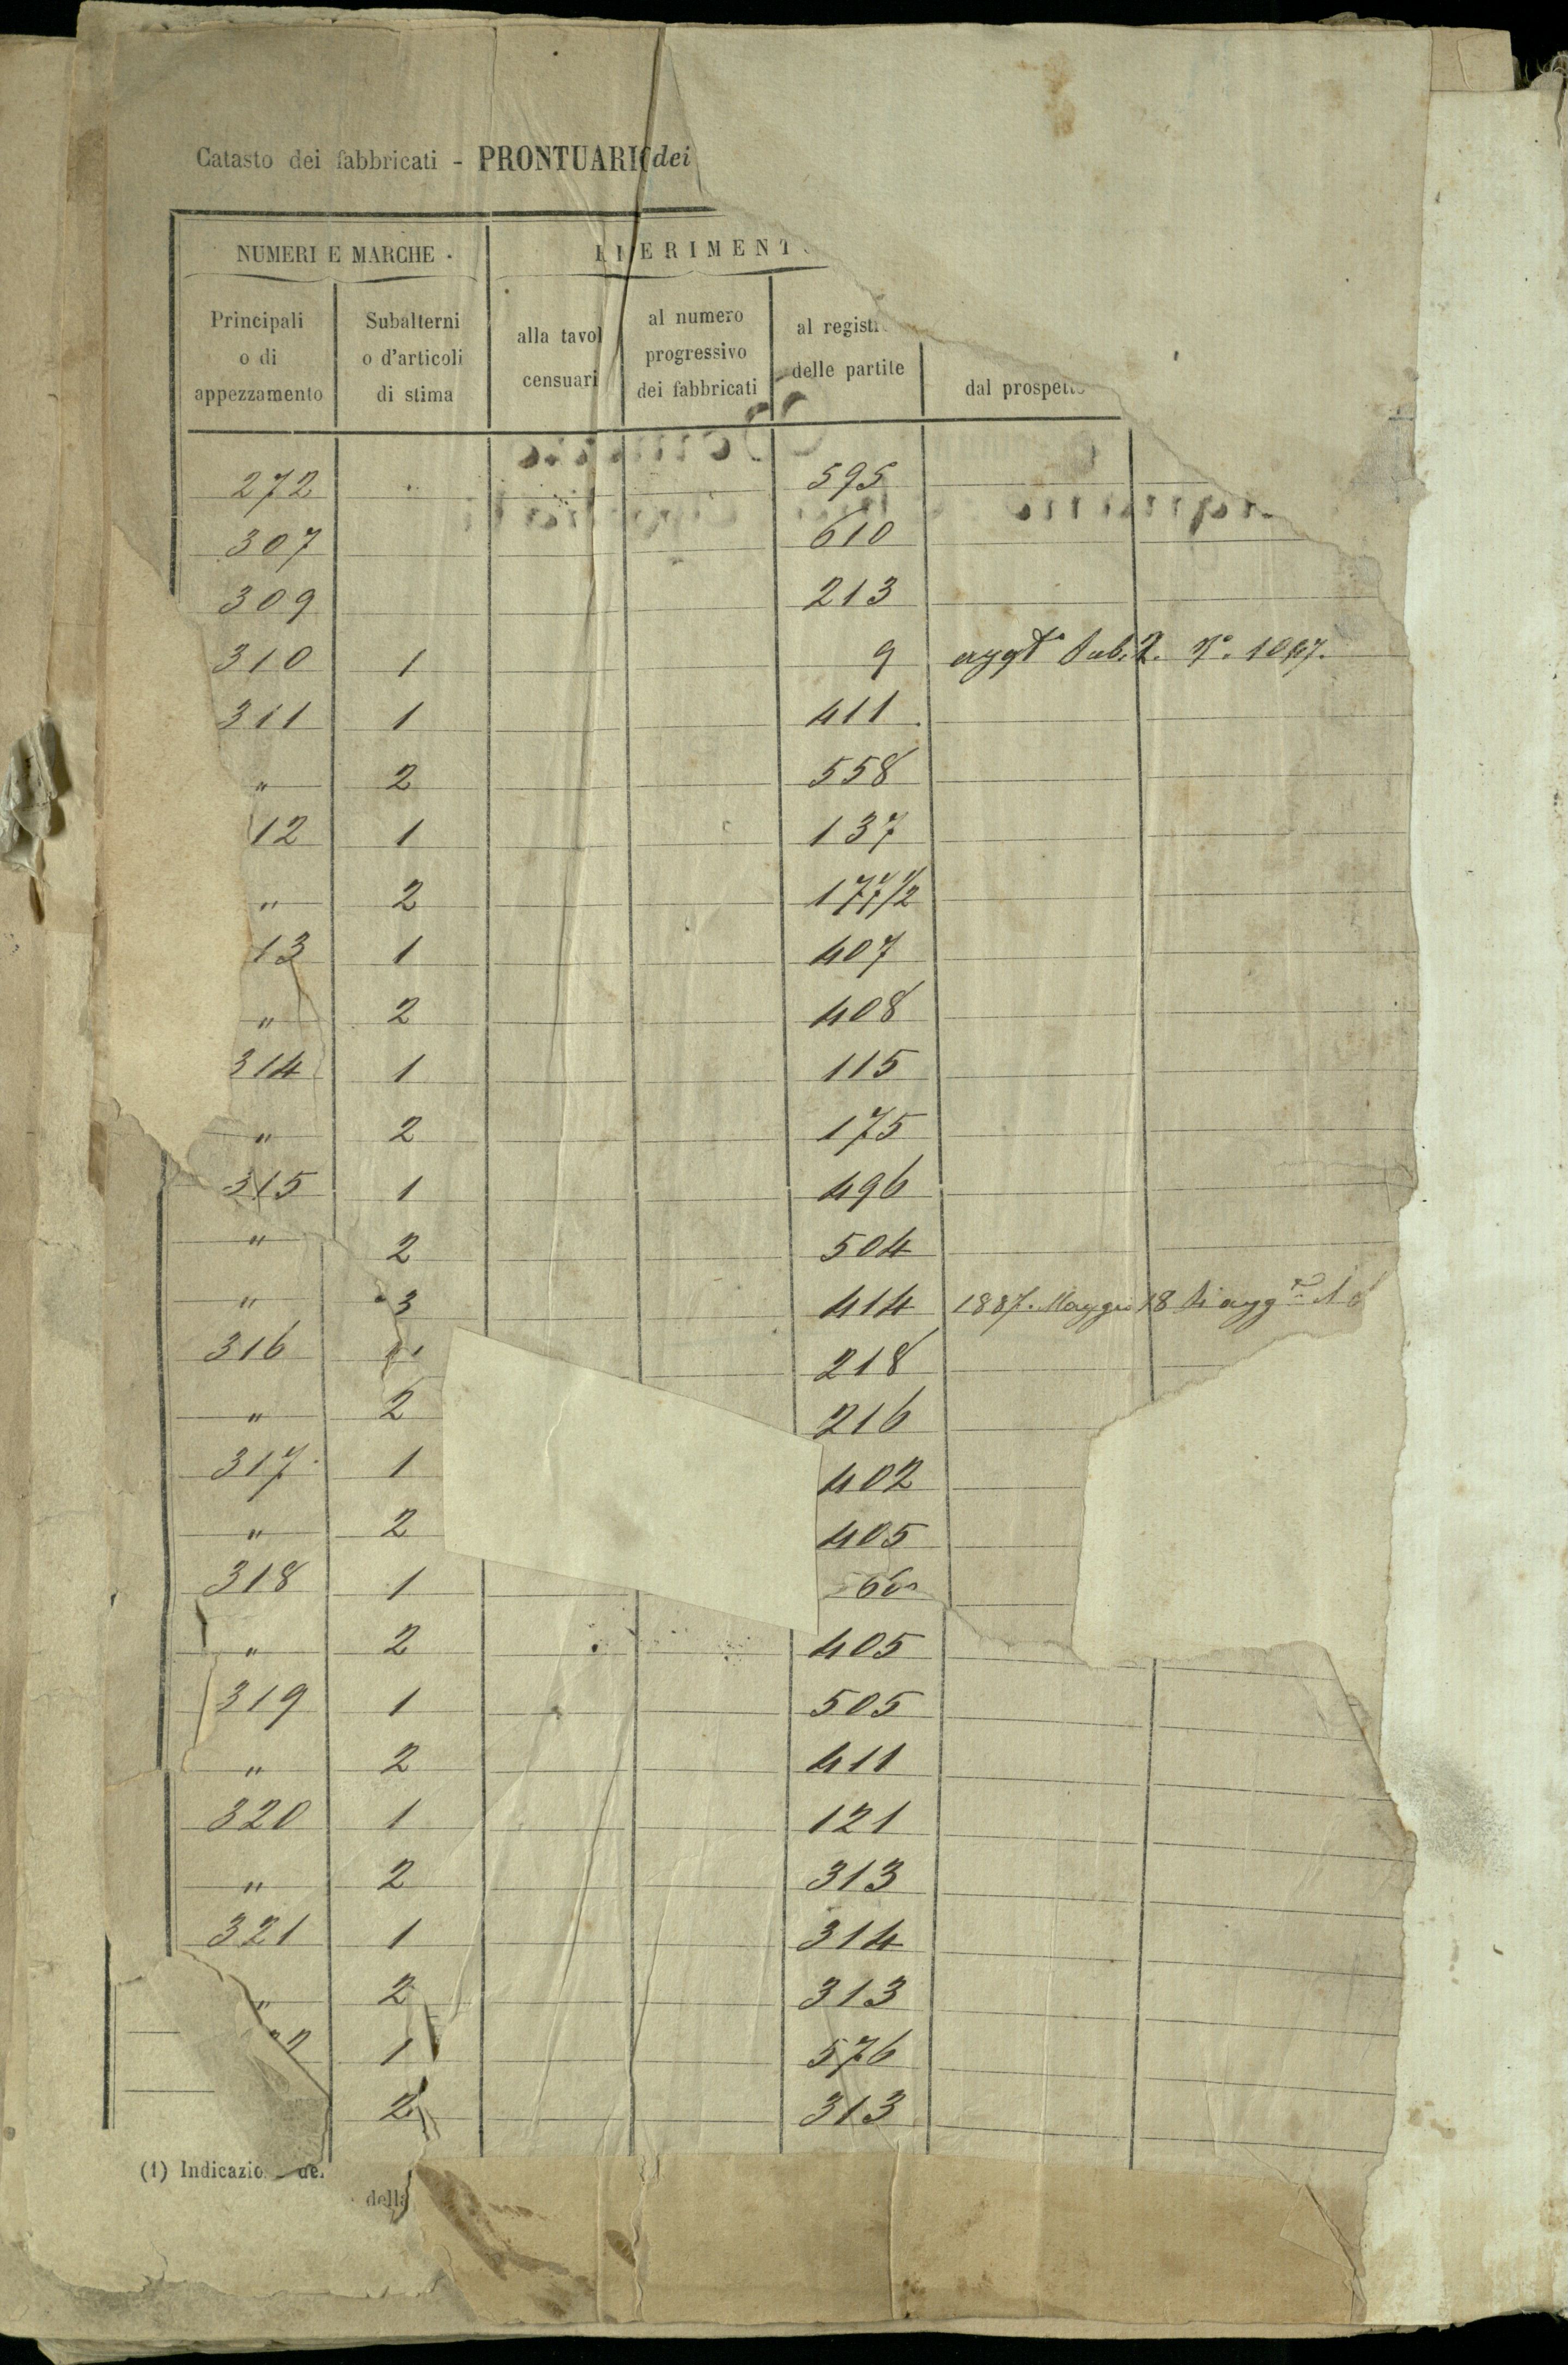 Catasto dei fabbricati - PRONTUARI dei
NUMERI E MARCHE
ERIMENT
Principali o di appezzamento
Subalterni o d'articoli di stima
alla tavol censuari
al numero progressivo dei fabbricati
al registr delle partite
dal prospetto
272 595
307 610
309 213
310 1 9 aggto Sub. 2.
311 1 411
" 2 558
12 1 137
" 2 177 1/2
13 1 407
" 2 408
314 1 115
" 2 175
315 1 496
" 2 504
" 3 414 1887. Maggio 18
316 218
" 2 216
317 1 402
" 2 405
318 1
" 2 405
319 1 505
" 2 411
320 1 121
" 2 313
321 1 314
" 2 313
1 576
2 313
(1) Indicazio del
della